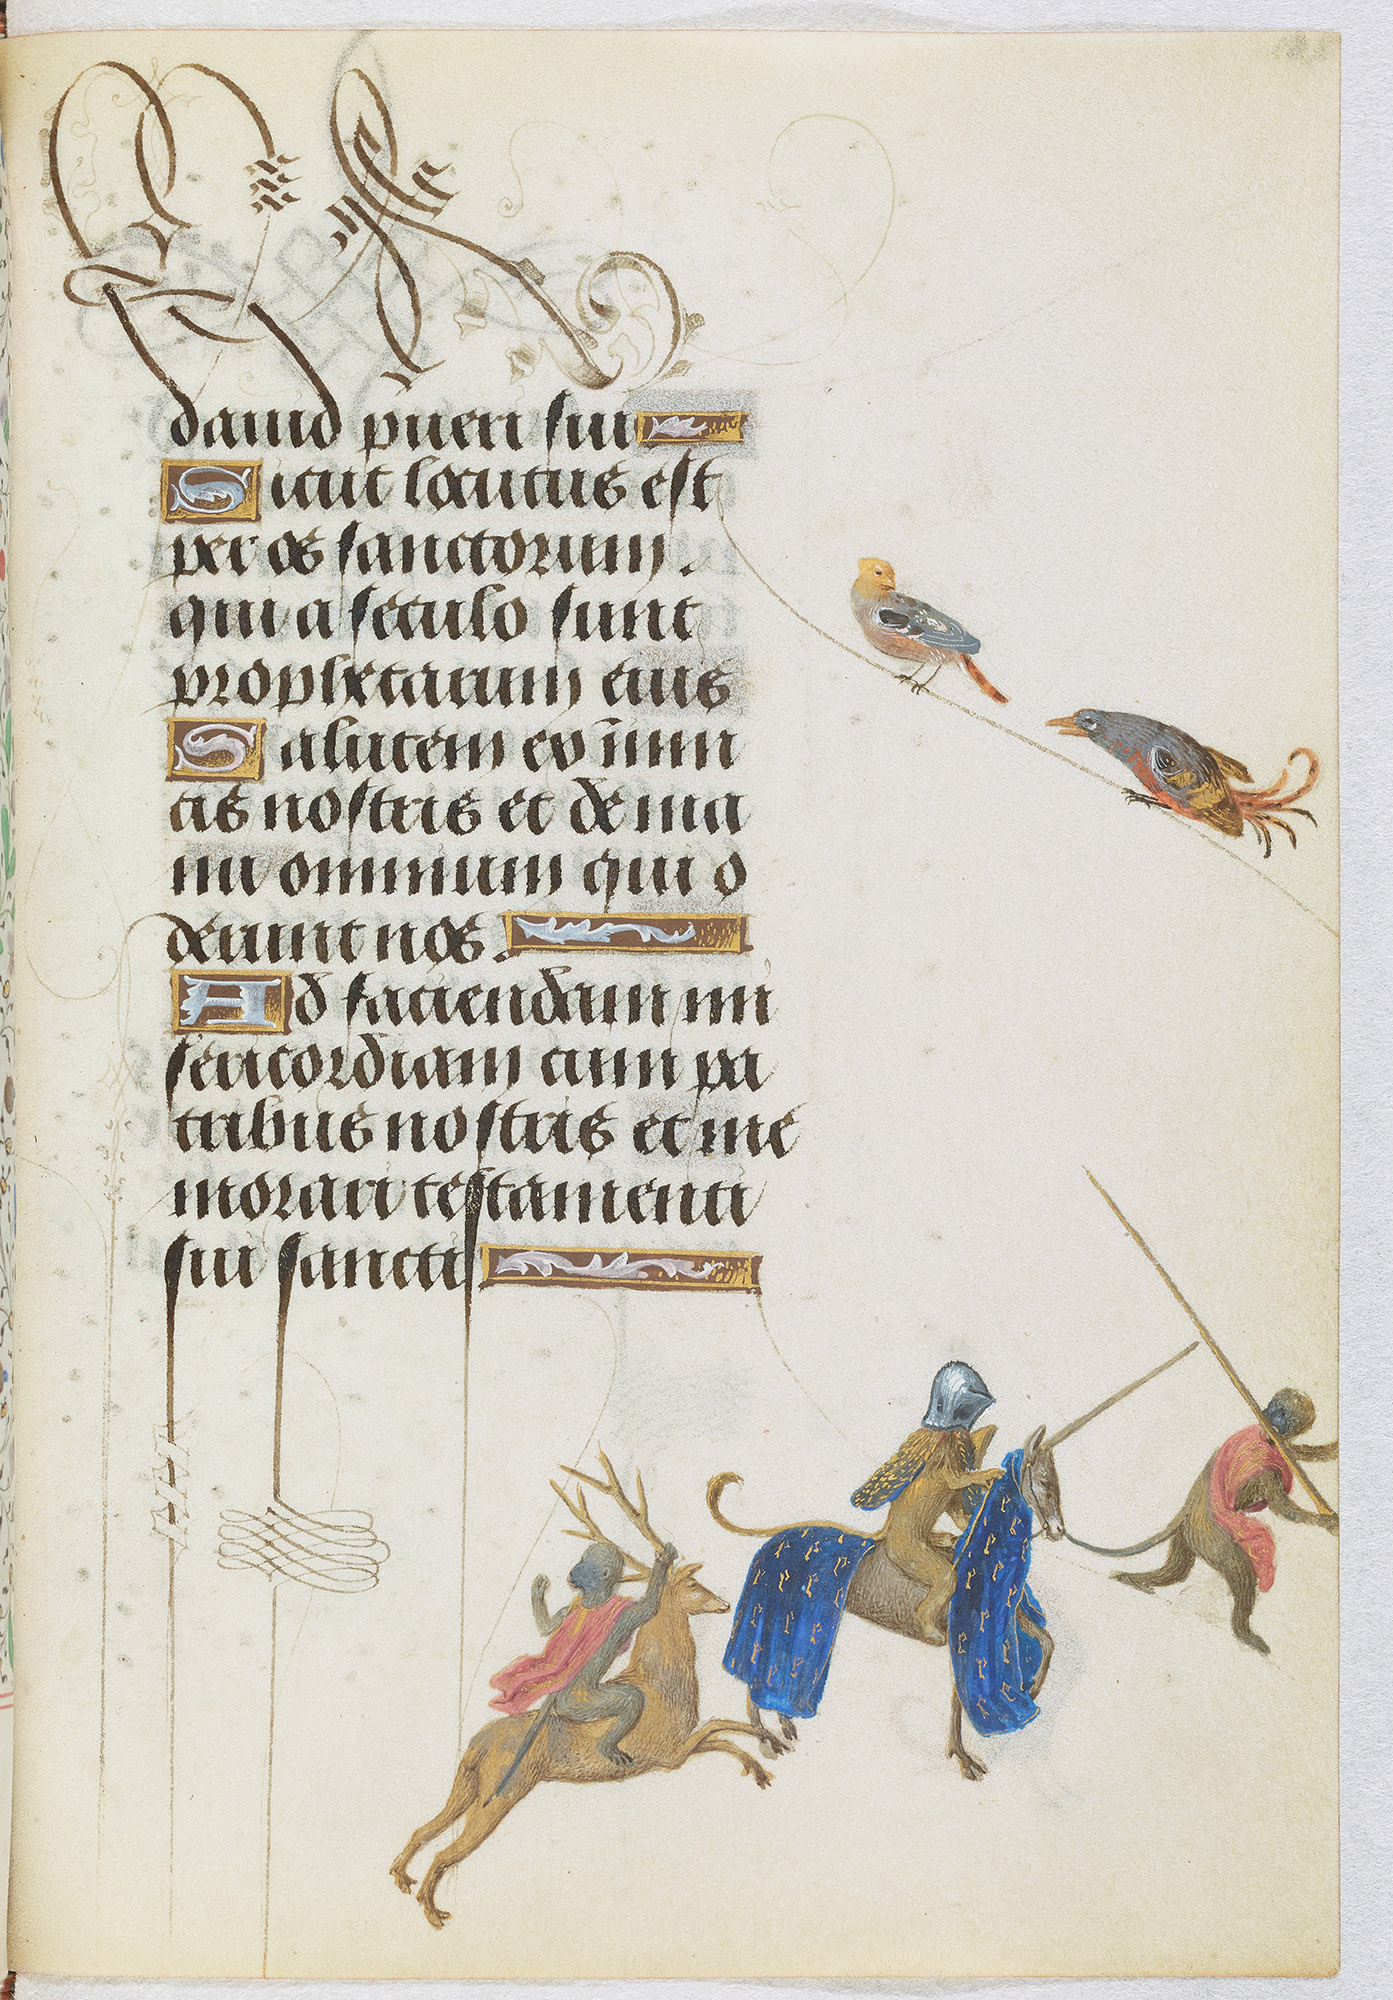 dauid pueri sui
Sicut locutus est
per os sanctorum.
qui a seculo sunt
prophetarum eius
Salutem ex inimi
cis nostris et de ma
nu omnium qui o
derunt nos.
Ad faciendam mi
sericordiam cum pa
tribus nostris et me
morari testamenti
sui sancti